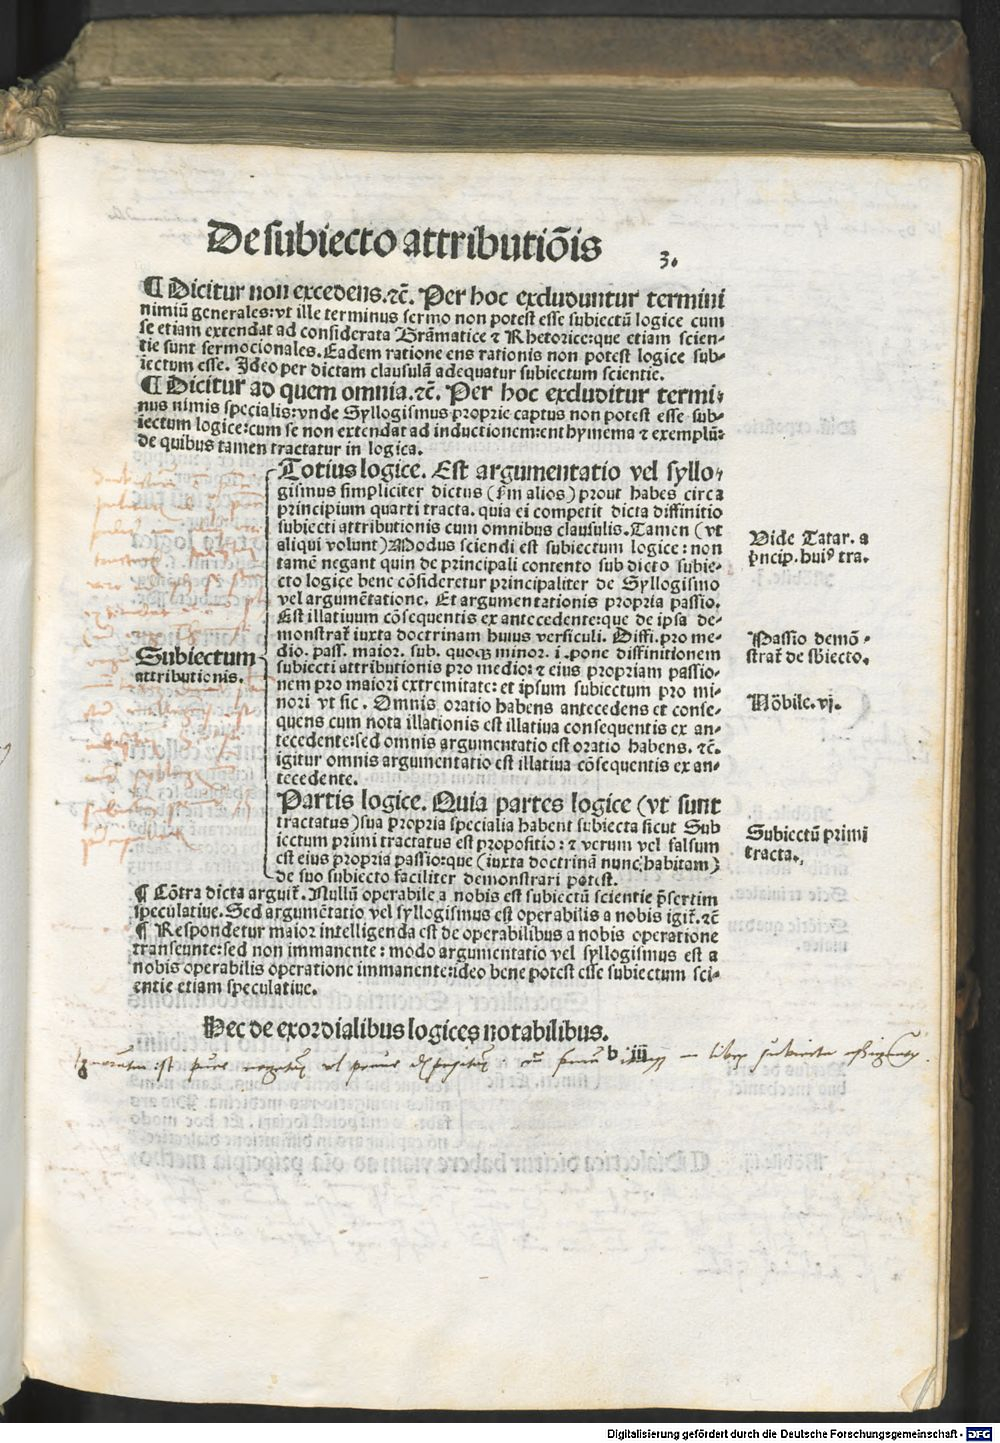 De subiecto attributiōis
3.
¶ Dicitur non excedens.⁊c̄. Per hoc excluduntur termini
nimiū generales: vt ille terminus sermo non potest esse subiectū logice cum
se etiam extendat ad considerata Grāmatice ⁊ Rhetorice: que etiam scien-
tie sunt sermocionales. Eadem ratione ens rationis non potest logice sub-
iectum esse. Ideo per dictam clausulā adequatur subiectum scientie.
¶ Dicitur ad quem omnia.⁊c̄. Per hoc excluditur termi-
nus nimis specialis: vnde Syllogismus proprie captus non potest esse sub-
iectum logice: cum se non extendat ad inductionem: enthymema ⁊ exemplū:
de quibus tamen tractatur in logica.
Totius logice. Est argumentatio vel syllo-
gismus simpliciter dictus (ẜm alios) prout habes circa
principium quarti tracta. quia ei competit dicta diffinitio
subiecti attributionis cum omnibus clausulis. Tamen (vt
aliqui volunt) Modus sciendi est subiectum logice: non
tamē negant quin de principali contento sub dicto subie-
cto logice bene cōsideretur principaliter de Syllogismo
vel argumētatione. Et argumentationis propria passio.
Est illatiuum cōsequentis ex antecedente: que de ipsa de-
monstrat̄ iuxta doctrinam huius versiculi. Diffi. pro me-
dio. pass. maior. sub. quoqꝫ minor. i. pone diffinitionem
subiecti attributionis pro medio: ⁊ eius propriam passio-
nem pro maiori extremitate: et ipsum subiectum pro mi-
nori vt sic. Omnis oratio habens antecedens et conse-
quens cum nota illationis est illatiua consequentis ex an-
tecedente: sed omnis argumentatio est oratio habens. ⁊c̄.
igitur omnis argumentatio est illatiua cōsequentis ex an-
tecedente.
Vide Tatar. a
prīncip. huiꝰ tra.
Passio demō-
strat̄ de sbiecto.
Nōbile. vj.
Subiectum
attributionis.
Partis logice. Quia partes logice (vt sunt
tractatus) sua propria specialia habent subiecta sicut Sub
iectum primi tractatus est propositio: ⁊ verum vel falsum
est eius propria passio: que (iuxta doctrinā nunc habitam)
de suo subiecto faciliter demonstrari potest.
Subiectū primi
tracta.
¶ Cōtra dicta arguit̄. Nullū operabile a nobis est subiectū scientie p̄sertim
speculatiue. Sed argumētatio vel syllogismus est operabilis a nobis igit̄. ⁊c̄
¶ Respondetur maior intelligenda est de operabilibus a nobis operatione
transeunte: sed non immanente: modo argumentatio vel syllogismus est a
nobis operabilis operatione immanente: ideo bene potest esse subiectum sci-
entie etiam speculatiue.
Hec de exordialibus logices notabilibus.
b iij
Digitalisierung gefördert durch die Deutsche Forschungsgemeinschaft - DFG